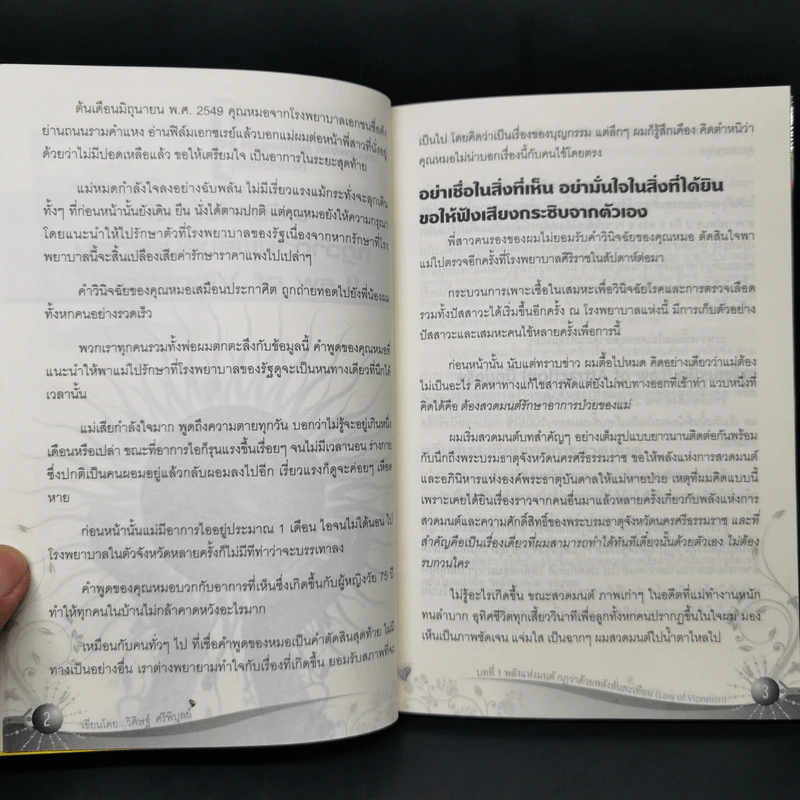 ต้นเดือนมิถุนายน พ.ศ. 2549 คุณหมอจากโรงพยาบาลเอกชนชื่อดัง
ย่านถนนรามคำแหง อ่านฟิล์มเอกซเรย์แล้วบอกแม่ผมต่อหน้าพี่สาวที่นั่งอยู่
ด้วยว่าไม่มีปอดเหลือแล้ว ขอให้เตรียมใจ เป็นอาการในระยะสุดท้าย
แม่หมดกำลังใจลงอย่างฉับพลัน ไม่มีเรี่ยวแรงแม้กระทั่งจะลุกเดิน
ทั้งๆ ที่ก่อนหน้านั้นยังเดิน ยืน นั่งได้ตามปกติ แต่คุณหมอยังให้ความกรุณา
โดยแนะนำให้ไปรักษาตัวที่โรงพยาบาลของรัฐเนื่องจากหากรักษาที่โรง
พยาบาลนี้จะสิ้นเปลืองเสียค่ารักษาราคาแพงไปเปล่าๆ
คำวินิจฉัยของคุณหมอเสมือนประกาศิต ถูกถ่ายทอดไปยังพี่น้องผม
ทั้งหกคนอย่างรวดเร็ว
พวกเราทุกคนรวมทั้งพ่อผมตกตะลึงกับข้อมูลนี้ คำพูดของคุณหมอที่
แนะนำให้พาแม่ไปรักษาที่โรงพยาบาลของรัฐดูจะเป็นหนทางเดียวที่นึกได้
เวลานั้น
แม่เสียกำลังใจมาก พูดถึงความตายทุกวัน บอกว่าไม่รู้จะอยู่เกินหนึ่ง
เดือนหรือเปล่า ขณะที่อาการไอก็รุนแรงขึ้นเรื่อยๆ จนไม่มีเวลานอน ร่างกาย
ซึ่งปกติเป็นคนผอมอยู่แล้วกลับผอมลงไปอีก เรี่ยวแรงก็ดูจะค่อยๆ เหือด
หาย
ก่อนหน้านั้นแม่มีอาการไออยู่ประมาณ 1 เดือน ไอจนไม่ได้นอน ไป
โรงพยาบาลในตัวจังหวัดหลายครั้งก็ไม่มีทีท่าว่าจะบรรเทาลง
คำพูดของคุณหมอบวกกับอาการที่เห็นซึ่งเกิดขึ้นกับผู้หญิงวัย 75 ปี
ทำให้ทุกคนในบ้านไม่กล้าคาดหวังอะไรมาก
เหมือนกับคนทั่วๆ ไป ที่เชื่อคำพูดของหมอเป็นคำตัดสินสุดท้าย ไม่มี
ทางเป็นอย่างอื่น เราต่างพยายามทำใจกับเรื่องที่เกิดขึ้น ยอมรับสภาพที่จะ
2 เขียนโดย...วิศิษฐ์ ศรีพิบูลย์
เป็นไป โดยคิดว่าเป็นเรื่องของบุญกรรม แต่ลึกๆ ผมก็รู้สึกเคือง คิดตำหนิว่า
คุณหมอไม่น่าบอกเรื่องนี้กับคนไข้โดยตรง
อย่าเชื่อในสิ่งที่เห็น อย่ามั่นใจในสิ่งที่ได้ยิน
ขอให้ฟังเสียงกระซิบจากตัวเอง
พี่สาวคนรองของผมไม่ยอมรับคำวินิจฉัยของคุณหมอ ตัดสินใจพา
แม่ไปตรวจอีกครั้งที่โรงพยาบาลศิริราชในสัปดาห์ต่อมา
กระบวนการเพาะเชื้อในเสมหะเพื่อวินิจฉัยโรคและการตรวจเลือด
รวมทั้งปัสสาวะได้เริ่มขึ้นอีกครั้ง ณ โรงพยาบาลแห่งนี้ มีการเก็บตัวอย่าง
ปัสสาวะและเสมหะคนไข้หลายครั้งเพื่อการนี้
ก่อนหน้านั้น นับแต่ทราบข่าว ผมตื้อไปหมด คิดอย่างเดียวว่าแม่ต้อง
ไม่เป็นอะไร คิดหาทางแก้ไขสารพัดแต่ยังไม่พบทางออกที่เข้าท่า แวบหนึ่งที่
คิดได้คือ ต้องสวดมนต์รักษาอาการป่วยของแม่
ผมเริ่มสวดมนต์บทสำคัญๆ อย่างเต็มรูปแบบยาวนานติดต่อกันพร้อม
กับนึกถึงพระบรมธาตุจังหวัดนครศรีธรรมราช ขอให้พลังแห่งการสวดมนต์
และอภินิหารแห่งองค์พระธาตุบันดาลให้แม่หายป่วย เหตุที่ผมคิดแบบนี้
เพราะเคยได้ยินเรื่องราวจากคนอื่นมาแล้วหลายครั้งเกี่ยวกับพลังแห่งการ
สวดมนต์และความศักดิ์สิทธิ์ของพระบรมธาตุจังหวัดนครศรีธรรมราช และที่
สำคัญคือเป็นเรื่องเดียวที่ผมสามารถทำได้ทันทีเดี๋ยวนั้นด้วยตัวเอง ไม่ต้อง
รบกวนใคร
ไม่รู้อะไรเกิดขึ้น ขณะสวดมนต์ ภาพเก่าๆ ในอดีตที่แม่ทำงานหนัก
ทนลำบาก อุทิศชีวิตทุกเสี้ยววินาทีเพื่อลูกทั้งหกคนปรากฏขึ้นในใจผม มอง
เห็นเป็นภาพชัดเจน แจ่มใส เป็นฉากๆ ผมสวดมนต์ไปน้ำตาไหลไป
บทที่ 1 พลังแห่งมนต์ กฎว่าด้วยพลังสั่นสะเทือน (Law of Vibration) 3